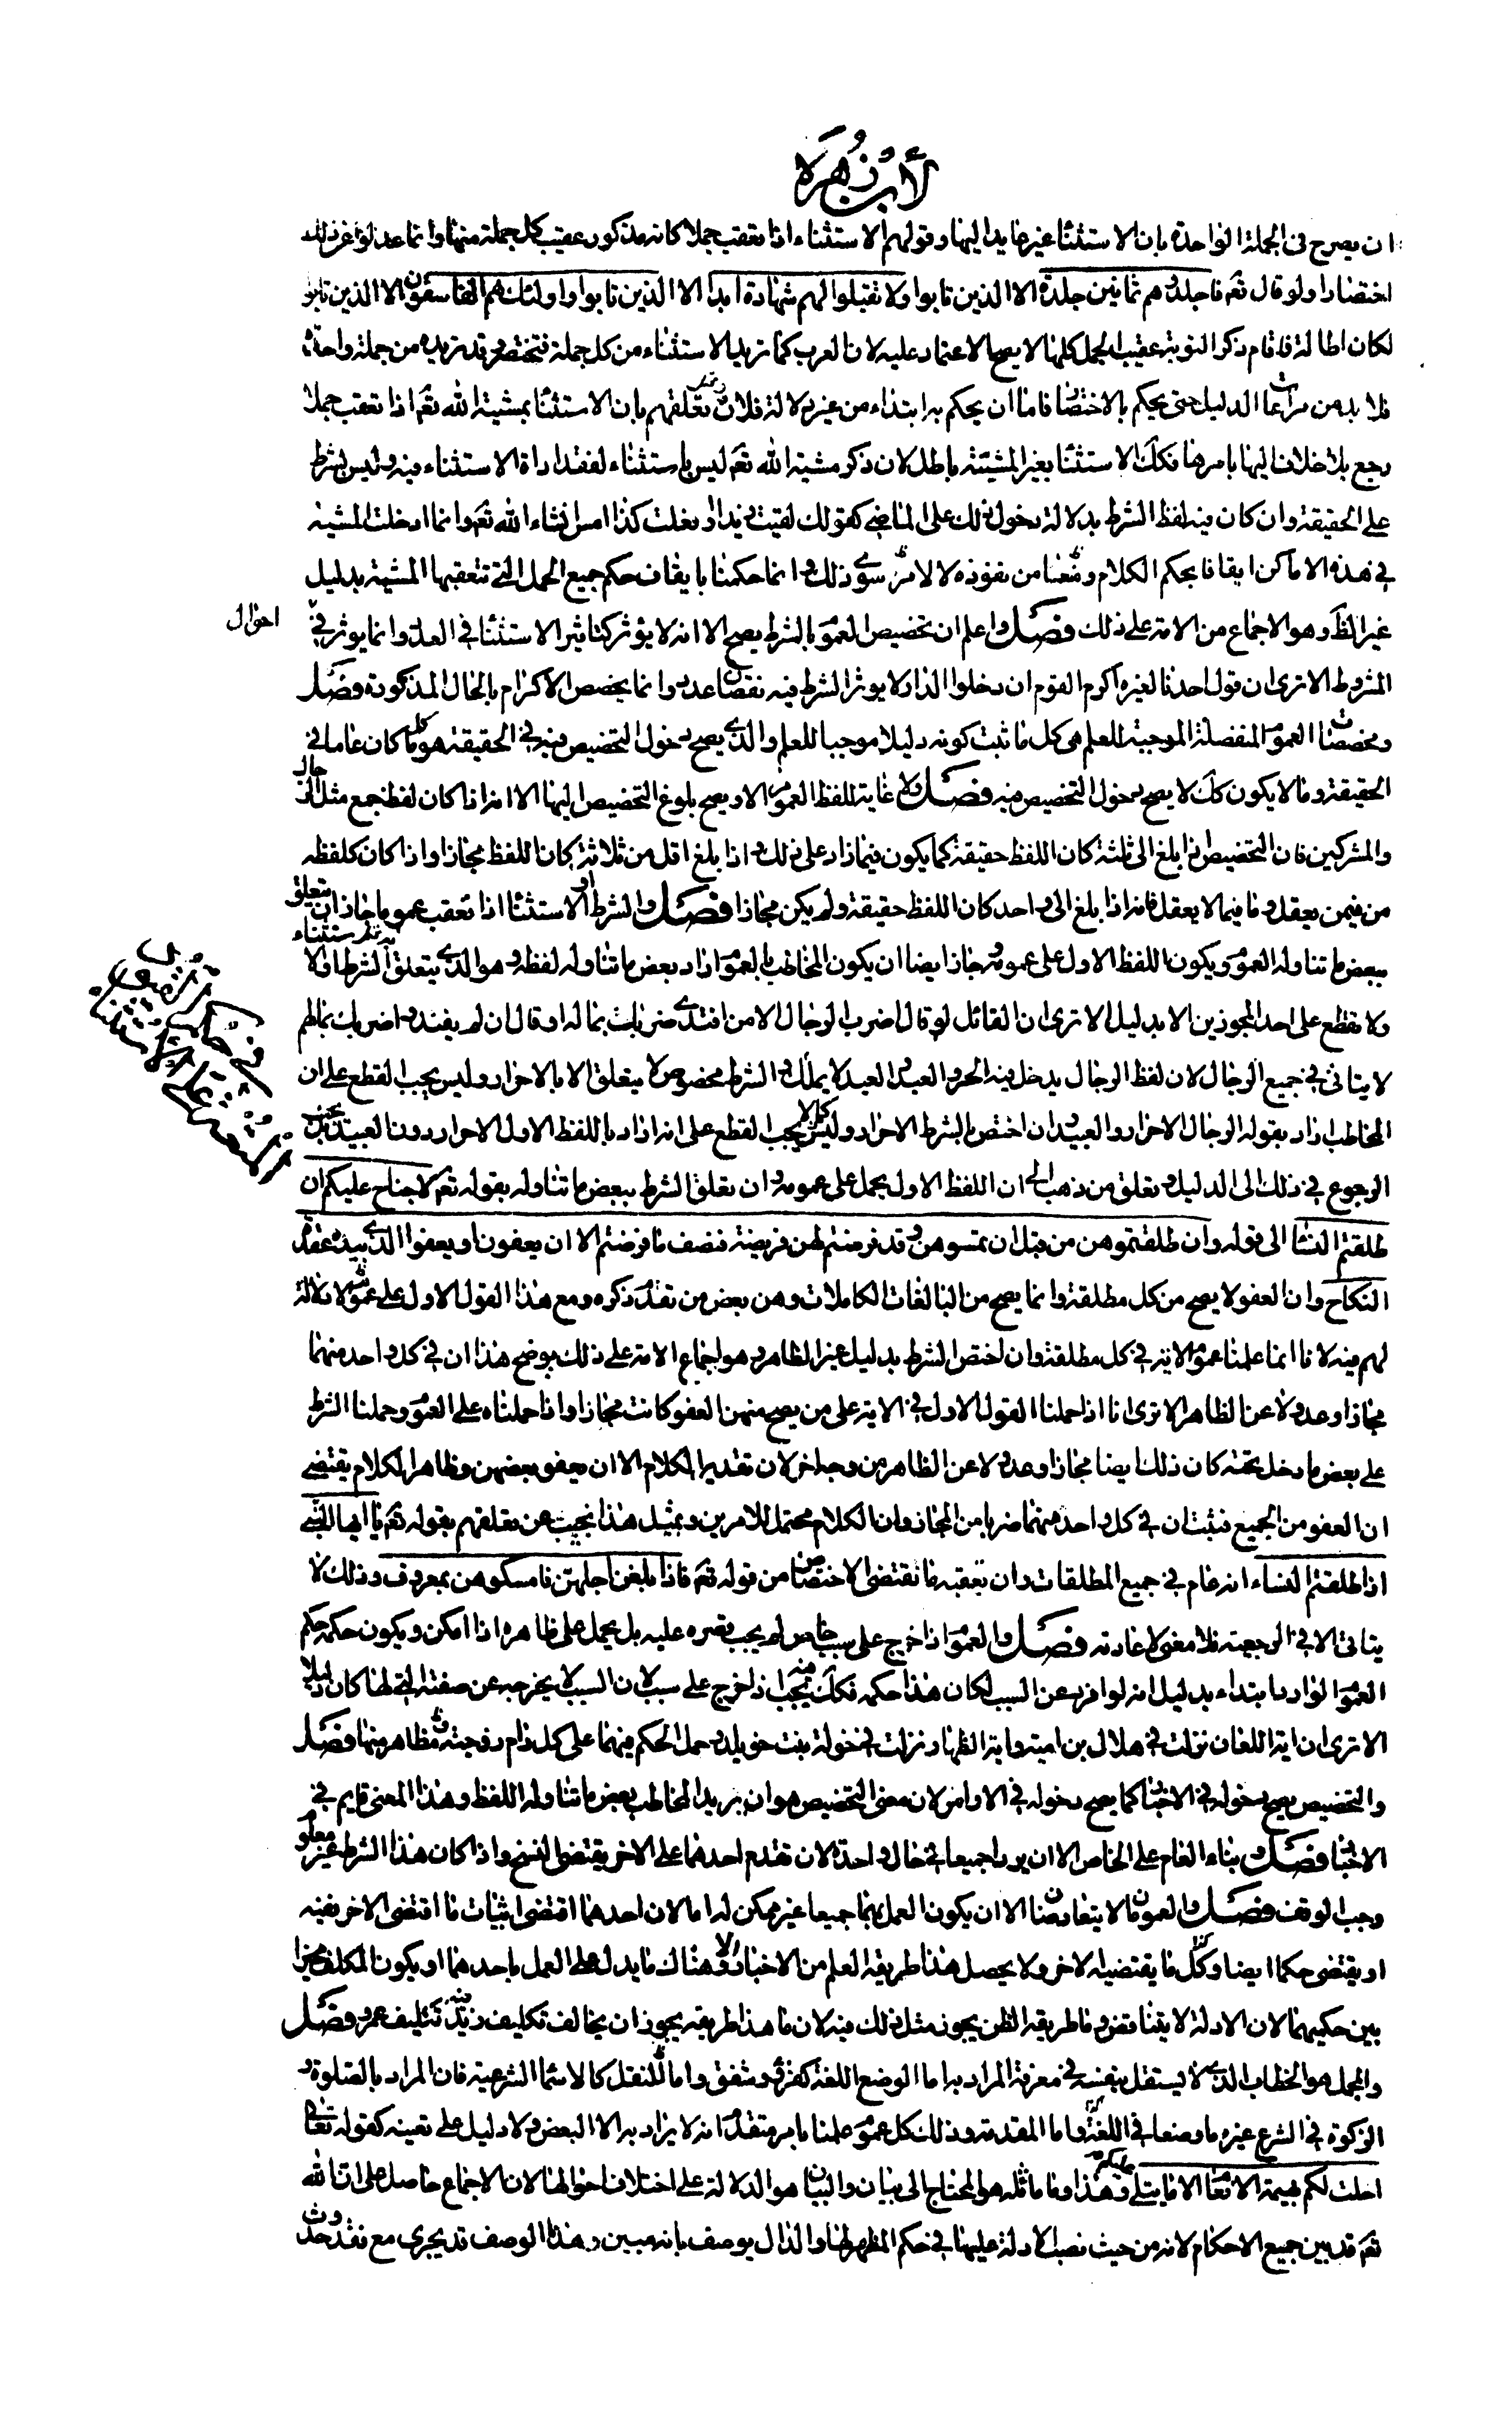 لأبن زُهرَة
ان يصرح فى الجملة الواحدة بان الاستثنا غير عايد اليها وقولهم الاستثناء اذا تعقب جملا كانه مذكور عقيب كل جملة منها وانما عدلوا عن ذلك
اختصارا ولو قال تعَ فاجلدوهم ثمانين جلدة الا الذين تابوا ولا تقبلوا لهم شهادة ابدا الا الذين تابوا واولئك هم الفاسقون الا الذين تابوا
لكان اطالة فاقام ذكر التوبة عقيب الجمل كلها لا يصح الاعتماد عليه لان العرب كما تريد الاستثناء من كل جملة فتختصر وقد تريده من جملة واحدة
فلا بد من مراعات الدليل حتى يحكم بالاختصار فاما ان يحكم به ابتداء من غير دلالة فلا وتعلقهم بان الاستثنا بمشية الله تعَ اذا تعقب جملا
رجع بلا خلاف اليها باسرها فكك الاستثنا بغير المشيئة باطل لان ذكر مشية الله تعَ ليس باستثناء لفقد اداة الاستثناء فيه وليس بشرط
على الحقيقة وان كان فيه لفظ الشرط بدلالة دخول ذلك على الماضى كقولك لقيت زيدا وفعلت كذا امس ان شاء الله تعَ وانما ادخلت المشية
فى هذه الاماكن ايقافا بحكم الكلام ومنعا من نفوذه لا لامر سوى ذلك وانما حكمنا بايقاف حكم جميع الجمل التى تتعقبها المشية بدليل
غير الظَ وهو الاجماع من الامة على ذلك فصل واعلم ان تخصيص العموَ بالشرط يصح الا انه لا يؤثر كتاثير الاستثنا فى العدد وانما يوثر فى
احوال
المشروط الا ترى ان قول احدنا لغيره اكرم القوم ان دخلوا الدار لا يوثر الشرط فيه نقصان عدد وانما يخصص الاكرام بالحال المذكورة فصل
ومخصصات العموَ المنفصلة الموجبة للعلم هى كل ما ثبت كونه دليلا موجبا للعلم والذى يصح دخول التخصيص فيه فى الحقيقة هو كل ما كان عاما فى
الحقيقة وما لا يكون كك لا يصح دخول التخصيص فيه فصل ولا غاية للفظ العموم الا ويصح بلوغ التخصيص اليها الا انه اذا كان لفظ جمع مثل الرجال
والمشركين فان التخصيص اذا بلغ الى ثلثة كان اللفظ حقيقة كما يكون فيما زاد على ذلك واذا بلغ اقل من ثلاثة كان اللفظ مجازا واذا كان كلفظه
من فيمن يعقل وما فيما لا يعقل فانه اذا بلغ الى واحد كان اللفظ حقيقة ولم يكن مجازا فصل والشرط او الاستثنا اذا تعقب عموما جاز ان يتعلق
ببعض ما تناوله العموَ ويكون اللفظ الاول على عمومه وجاز ايضا ان يكون المخاطب بالعموَ اراد بعض ما تناوله لفظه وهو الذى يتعلق به الشرط والاستثناء
ولا نقطع على احد المجوزين الا بدليل الا ترى ان القائل لو قال اضرب الرجال الا من افتدى ضربك بماله او قال ان لم يفتدوا ضربك بمالهم
لا يتاتى فى جميع الرجال لان لفظ الرجال يدخل فيه الحر والعبد والعبد لا يملك والشرط مخصوص لا يتعلق الا بالاحرار وليس يجب القطع على ان
المخاطب اراد بقوله الرجال الاحرار والعبيد وان اختص بالشرط الاحرار وليس كلا يجب القطع على انه اراد باللفظ الاول الاحرار دون العبيد
الرجوع فى ذلك الى الدليل وتعلق من ذهب الى ان اللفظ الاول يحمل على عمومه وان تعلق الشرط ببعض ما تناوله بقوله تعَ لا جناح عليكم ان
طلقتم النسا الى قوله وان طلقتموهن من قبل ان تمسوهن وقد فرضتم لهن فريضة فنصف ما فرضتم الا ان يعفون او يعفوا الذى بيده عقدة
النكاح وان العفو لا يصح من كل مطلقة وانما يصح من البالغات الكاملات وهن بعض من تقدَ ذكره ومع هذا القول الاول على عمومه لا دلالة
لهم فيه لانا انما علمنا عموَ الاية فى كل مطلقة وان اختص الشرط بدليل غير الظاهر وهو اجماع الامة على ذلك يوضح هذا ان فى كل واحد منهما
مجازا وعدولا عن الظاهر الا ترى انا اذا حملنا القول الاول فى الاية على من يصح منهن العفو كانت مجازا واذا حملناه على العموَ وحملنا الشرط
على بعض ما دخل تحته كان ذلك ايضا مجازا وعدولا عن الظاهر من وجه اخر لان تقدير الكلام الا ان يعفو بعضهن وظاهر الكلام يقتضى
ان العفو من الجميع فثبت ان فى كل واحد منهما ضربا من المجاز وان الكلام محتمل للامرين وبمثل هذا نجيب عن تعلقهم بقوله تعَ يا ايها النبى
اذا طلقتم النساء انه عام فى جميع المطلقات وان تعقبه ما تقتضى الاختصاص من قوله تعَ فاذا بلغن اجلهن فامسكوهن بمعروف وذلك لا
يتاتى الا فى الرجعية فلا معنى لاعادته فصل والعموَ اذا خرج على سبب خاص لم يجب قصره عليه بل يحمل على ظاهره اذا امكن ويكون حكمه حكم
العموَ الوارد ابتداء بدليل انه لو افرد عن السبب لكان هذا حكمه فكك يجب فيه اذا خرج على سبب لان السبب لا يخرجه عن صفته التى لها كان دليلا
الا ترى ان اية اللعان نزلت فى هلال بن امية واية الظهار نزلت فى خولة بنت خويلد وحمل الحكم فيهما على كل رام زوجته ومظاهر منها فصل
والتخصيص يصح دخوله فى الاخبار كما يصح دخوله فى الاوامر لان معنى التخصيص هو ان يريد المخاطب بعض ما تناوله اللفظ وهذا المعنى قايم فى
الاخبار فصل وبناء العام على الخاص الا ان يردا جميعا فى حال واحدة لان تقدم احدهما على الاخر يقتضى النسخ واذا كان هذا الشرط غير معلوم
وجب الوقف فصل والعمومان لا يتعارضان الا ان يكون العمل بهما جميعا غير ممكن لامر اما لان احدهما اقتضى اثبات ما اقتضى الاخر نفيه
او يقتضى حكما ايضا وكل ما يقتضيه الاخر ولا يحصل هذا طريقة العلم من الاخبار الا وهناك ما يدل على العمل باحدهما او يكون المكلف مخيرا
بين حكميهما لان الادلة لا يتناقض وما طريقه الظن يجوز مثل ذلك فيه لان ما هذا طريقه يجوز ان يخالف تكليف زيد فيه تكليف عمرو فصل
والمجمل هو الخطاب الذى لا يستقل بنفسه فى معرفة المراد به اما الوضع اللغة كقرؤ وشفق واما للنقل كالاسما الشرعية فان المراد بالصلوة و
الزكوة فى الشرع غير ما وضعا فى اللغة واما المقدمة وذلك كل عموَ علمنا بامر متقدَ انه لا يراد به الا البعض ولا دليل على تعينه كقوله تعالى
احلت لكم بهيمة الانعاَ الا ما يتلى عليكم وهذا وما ماثله هو المحتاج الى بيان والبيان هو الدلالة على اختلاف احوالها لان الاجماع حاصل على ان الله
تعَ قد بين جميع الاحكام لانه من حيث نصب الادلة عليها فى حكم المظهر لها والدال يوصف بانه مبين وهذا الوصف قد يجرى مع فقد حدوث